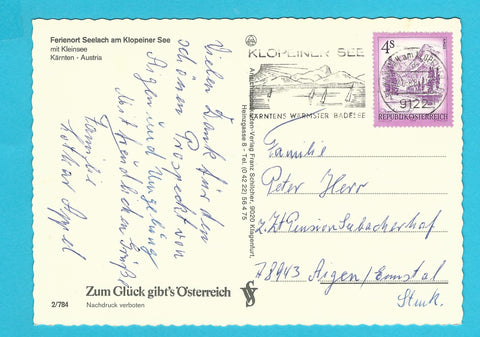 Ferienort Seelach am Klopeiner See
mit Kleinsee
Kärnten - Austria
Vielen Dank für den
schönen Prospekt von
Aigen und Umgebung
Mit freundlichen Grüße
Familie
Lothar Appel
Zum Glück gibt's Österreich
2/784
Nachdruck verboten
Verlag Franz Schilcher, 9020 Klagenfurt,
Heinzgasse 8 - Tel. (0 42 22) 56 4 75
KLOPEINER SEE
KÄRNTENS WÄRMSTER BADESEE
4 S
9122
REPUBLIK ÖSTERREICH
Familie
Peter Herr
z. Zt Pension Seebacherhof
A 8943 Aigen/Ennstal
Stmk.